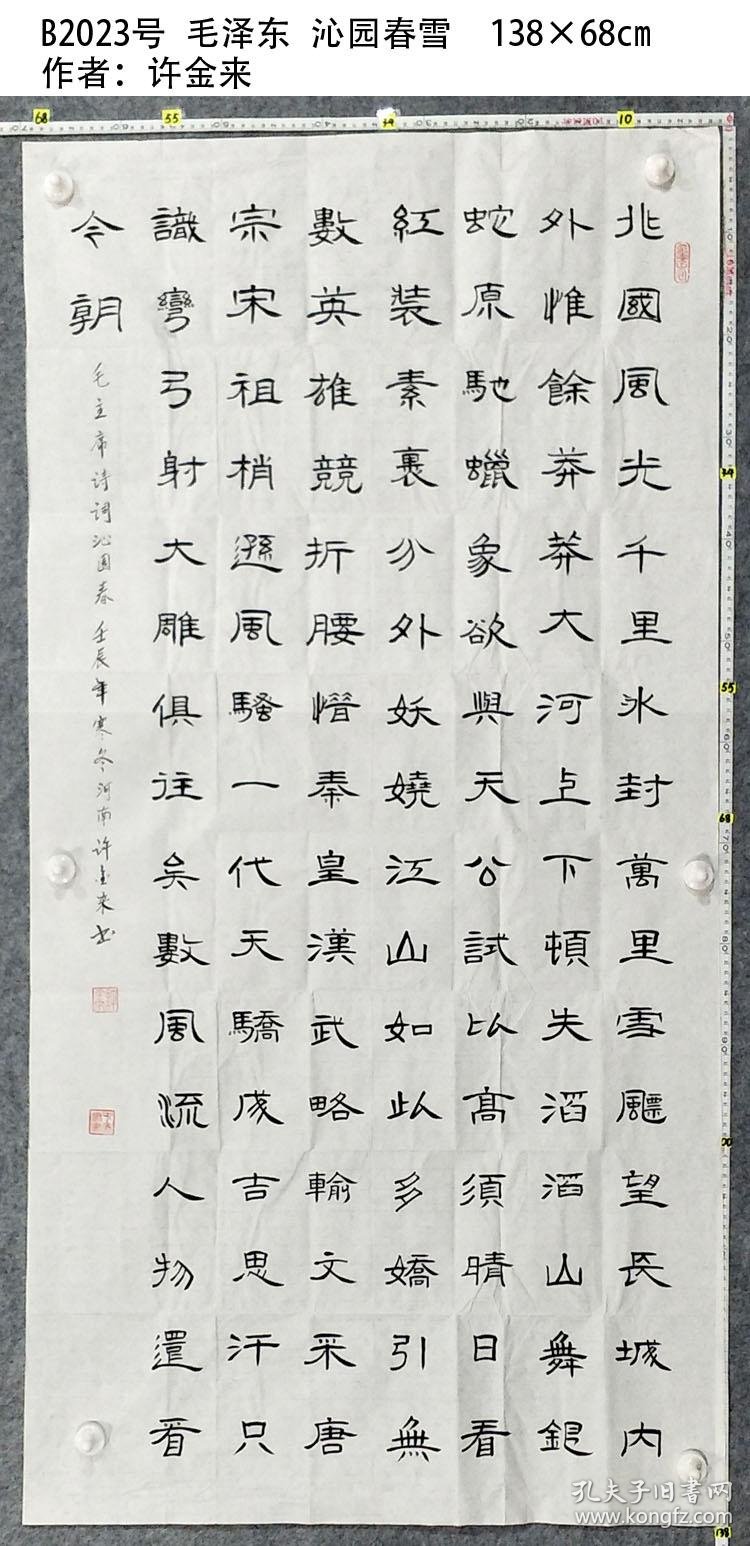 B2023号 毛泽东 沁园春雪 138×68cm
作者：许金来
68 55 34 10
北國風光千里氷封萬里雪飄望長城内
外惟餘莽莽大河上下頓失滔滔山舞銀
蛇原馳蠟象欲與天公試比高須晴日看
紅裝素裹分外妖嬈江山如此多嬌引無
數英雄競折腰惜秦皇漢武略輸文采唐
宗宋祖梢遜風騷一代天驕成吉思汗只
識彎弓射大雕俱往矣數風流人物還看
今朝
毛主席诗词沁园春 壬辰年寒冬河南许金来书
34
55
68
138
孔夫子旧書网
www.kongfz.com